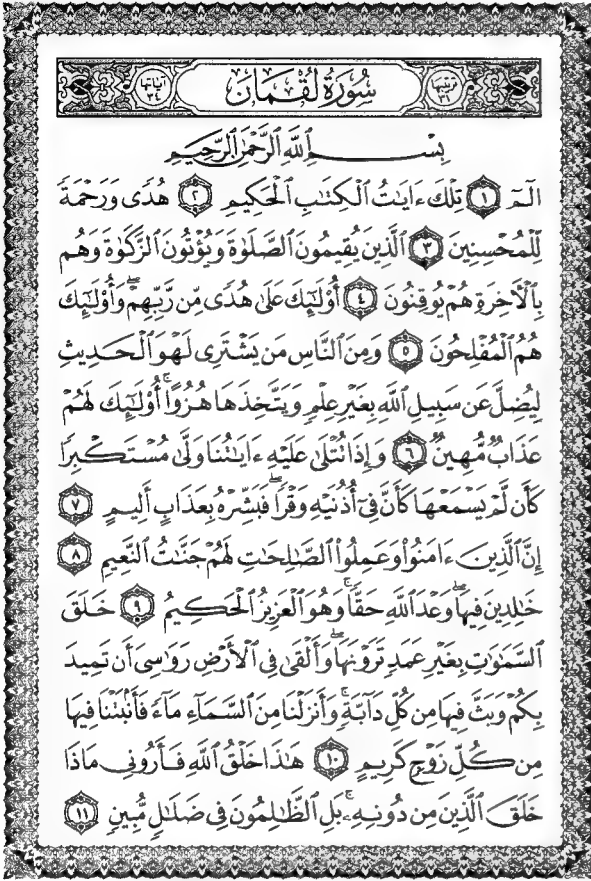 ترتيبها ٣١ سُورَةُ لُقْمَانَ آياتها ٣٤
بِسْمِ ٱللَّهِ ٱلرَّحْمَٰنِ ٱلرَّحِيمِ
الٓمٓ ١ تِلْكَ ءَايَٰتُ ٱلْكِتَٰبِ ٱلْحَكِيمِ ٢ هُدًى وَرَحْمَةً
لِّلْمُحْسِنِينَ ٣ ٱلَّذِينَ يُقِيمُونَ ٱلصَّلَوٰةَ وَيُؤْتُونَ ٱلزَّكَوٰةَ وَهُم
بِٱلْأَخِرَةِ هُمْ يُوقِنُونَ ٤ أُوْلَٰٓئِكَ عَلَىٰ هُدًى مِّن رَّبِّهِمْۖ وَأُوْلَٰٓئِكَ
هُمُ ٱلْمُفْلِحُونَ ٥ وَمِنَ ٱلنَّاسِ مَن يَشْتَرِى لَهْوَ ٱلْحَدِيثِ
لِيُضِلَّ عَن سَبِيلِ ٱللَّهِ بِغَيْرِ عِلْمٍ وَيَتَّخِذَهَا هُزُوًاۚ أُوْلَٰٓئِكَ لَهُمْ
عَذَابٌ مُّهِينٌ ٦ وَإِذَا تُتْلَىٰ عَلَيْهِ ءَايَٰتُنَا وَلَّىٰ مُسْتَكْبِرًا
كَأَن لَّمْ يَسْمَعْهَا كَأَنَّ فِىٓ أُذُنَيْهِ وَقْرًاۖ فَبَشِّرْهُ بِعَذَابٍ أَلِيمٍ ٧
إِنَّ ٱلَّذِينَ ءَامَنُوا۟ وَعَمِلُوا۟ ٱلصَّٰلِحَٰتِ لَهُمْ جَنَّٰتُ ٱلنَّعِيمِ ٨
خَٰلِدِينَ فِيهَاۖ وَعْدَ ٱللَّهِ حَقًّاۚ وَهُوَ ٱلْعَزِيزُ ٱلْحَكِيمُ ٩ خَلَقَ
ٱلسَّمَٰوَٰتِ بِغَيْرِ عَمَدٍ تَرَوْنَهَاۖ وَأَلْقَىٰ فِى ٱلْأَرْضِ رَوَٰسِىَ أَن تَمِيدَ
بِكُمْ وَبَثَّ فِيهَا مِن كُلِّ دَآبَّةٍۚ وَأَنزَلْنَا مِنَ ٱلسَّمَآءِ مَآءً فَأَنۢبَتْنَا فِيهَا
مِن كُلِّ زَوْجٍ كَرِيمٍ ١٠ هَٰذَا خَلْقُ ٱللَّهِ فَأَرُونِى مَاذَا
خَلَقَ ٱلَّذِينَ مِن دُونِهِۦۚ بَلِ ٱلظَّٰلِمُونَ فِى ضَلَٰلٍ مُّبِينٍ ١١